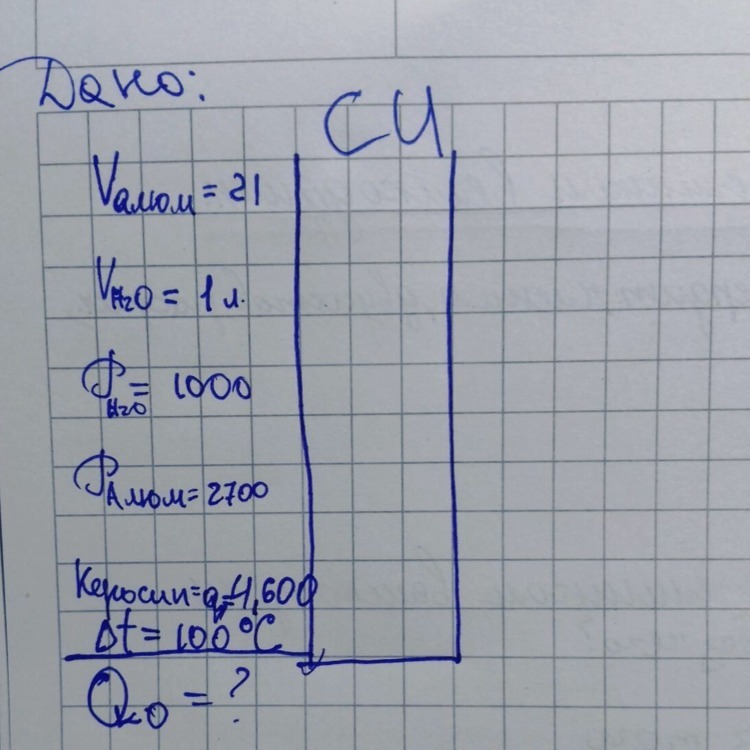 Дано:
СИ
Vалюм = 21
VH2O = 1 л.
ρH2O = 1000
ρАлюм = 2700
Керосин = q = 4,600
Δt = 100°C
Qко = ?